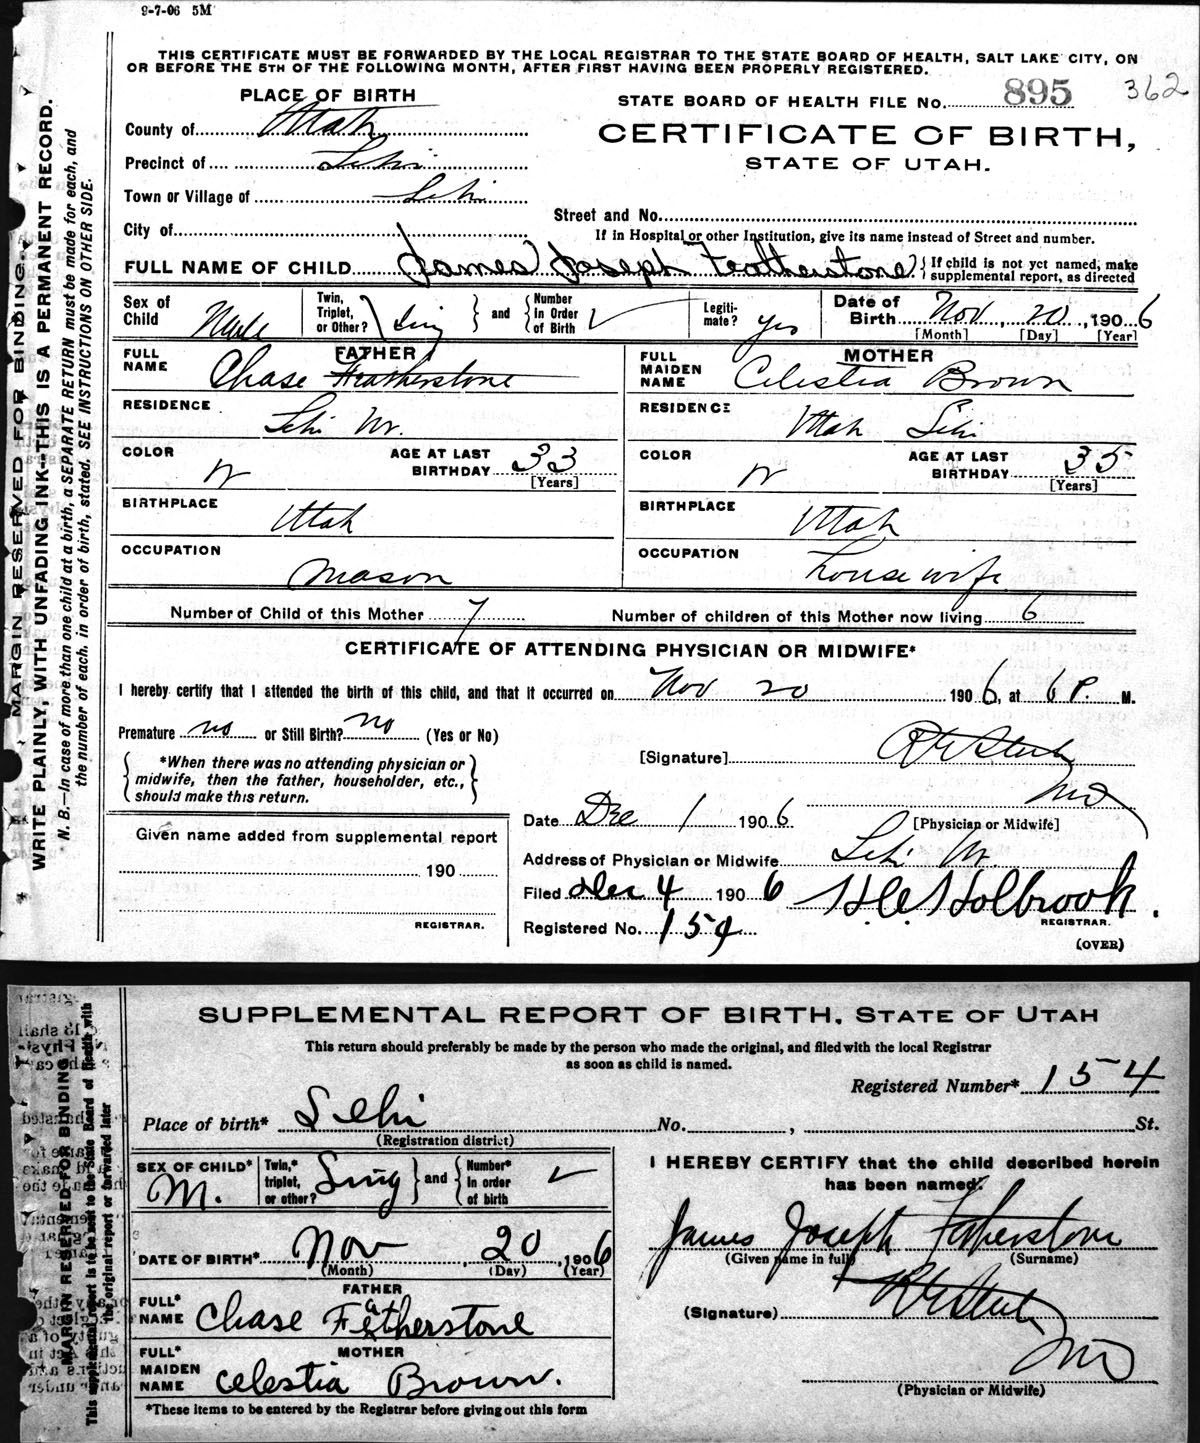 9-7-06 5M
THIS CERTIFICATE MUST BE FORWARDED BY THE LOCAL REGISTRAR TO THE STATE BOARD OF HEALTH, SALT LAKE CITY, ON
OR BEFORE THE 5TH OF THE FOLLOWING MONTH, AFTER FIRST HAVING BEEN PROPERLY REGISTERED.
PLACE OF BIRTH
STATE BOARD OF HEALTH FILE No. 895 362
County of Utah
CERTIFICATE OF BIRTH,
STATE OF UTAH.
Precinct of Lehi
Town or Village of Lehi
Street and No.
City of
If in Hospital or other Institution, give its name instead of Street and number.
FULL NAME OF CHILD James Joseph Featherstone { If child is not yet named, make
supplemental report, as directed
Sex of Child Male
Twin, Triplet, or Other? Sing } and { Number In Order of Birth
Legiti-mate? yes
Date of Birth Nov, 20, 1906
[Month] [Day] [Year]
FATHER
FULL NAME Chase Featherstone
MOTHER
FULL MAIDEN NAME Celestia Brown
RESIDENCE Lehi
RESIDENCE Utah Lehi
COLOR W AGE AT LAST BIRTHDAY 33
[Years]
COLOR W AGE AT LAST BIRTHDAY 35
[Years]
BIRTHPLACE Utah
BIRTHPLACE Utah
OCCUPATION Mason
OCCUPATION housewife
Number of Child of this Mother 7 Number of children of this Mother now living 6
CERTIFICATE OF ATTENDING PHYSICIAN OR MIDWIFE*
I hereby certify that I attended the birth of this child, and that it occurred on Nov 20 1906, at 6 P. M.
Premature no or Still Birth? no (Yes or No)
[Signature]
MD
*When there was no attending physician or
midwife, then the father, householder, etc.,
should make this return.
Date Dec 1 1906
[Physician or Midwife]
Given name added from supplemental report
190
REGISTRAR.
Address of Physician or Midwife Lehi
Filed Dec 4 1906 H.C. Holbrook.
REGISTRAR.
Registered No. 154
(OVER)
MARGIN RESERVED FOR BINDING.
WRITE PLAINLY, WITH UNFADING INK—THIS IS A PERMANENT RECORD.
N. B.—In case of more than one child at a birth, a SEPARATE RETURN must be made for each, and
the number of each, in order of birth, stated. SEE INSTRUCTIONS ON OTHER SIDE.
SUPPLEMENTAL REPORT OF BIRTH, STATE OF UTAH
This return should preferably be made by the person who made the original, and filed with the local Registrar
as soon as child is named.
Registered Number* 154
Place of birth* Lehi No. , St.
(Registration district)
SEX OF CHILD* M.
Twin,* triplet, or other? Sing } and { Number* In order of birth
I HEREBY CERTIFY that the child described herein
has been named:
James Joseph Fatherstone
(Given name in full) (Surname)
DATE OF BIRTH* Nov, 20, 1906
(Month) (Day) (Year)
FATHER
FULL* NAME Chase Featherstone
(Signature)
MD
(Physician or Midwife)
MOTHER
FULL* MAIDEN NAME Celestia Brown.
*These items to be entered by the Registrar before giving out this form
MARGIN RESERVED FOR BINDING
This supplemental report is to be sent to the State Board of Health with
the original report or forwarded later